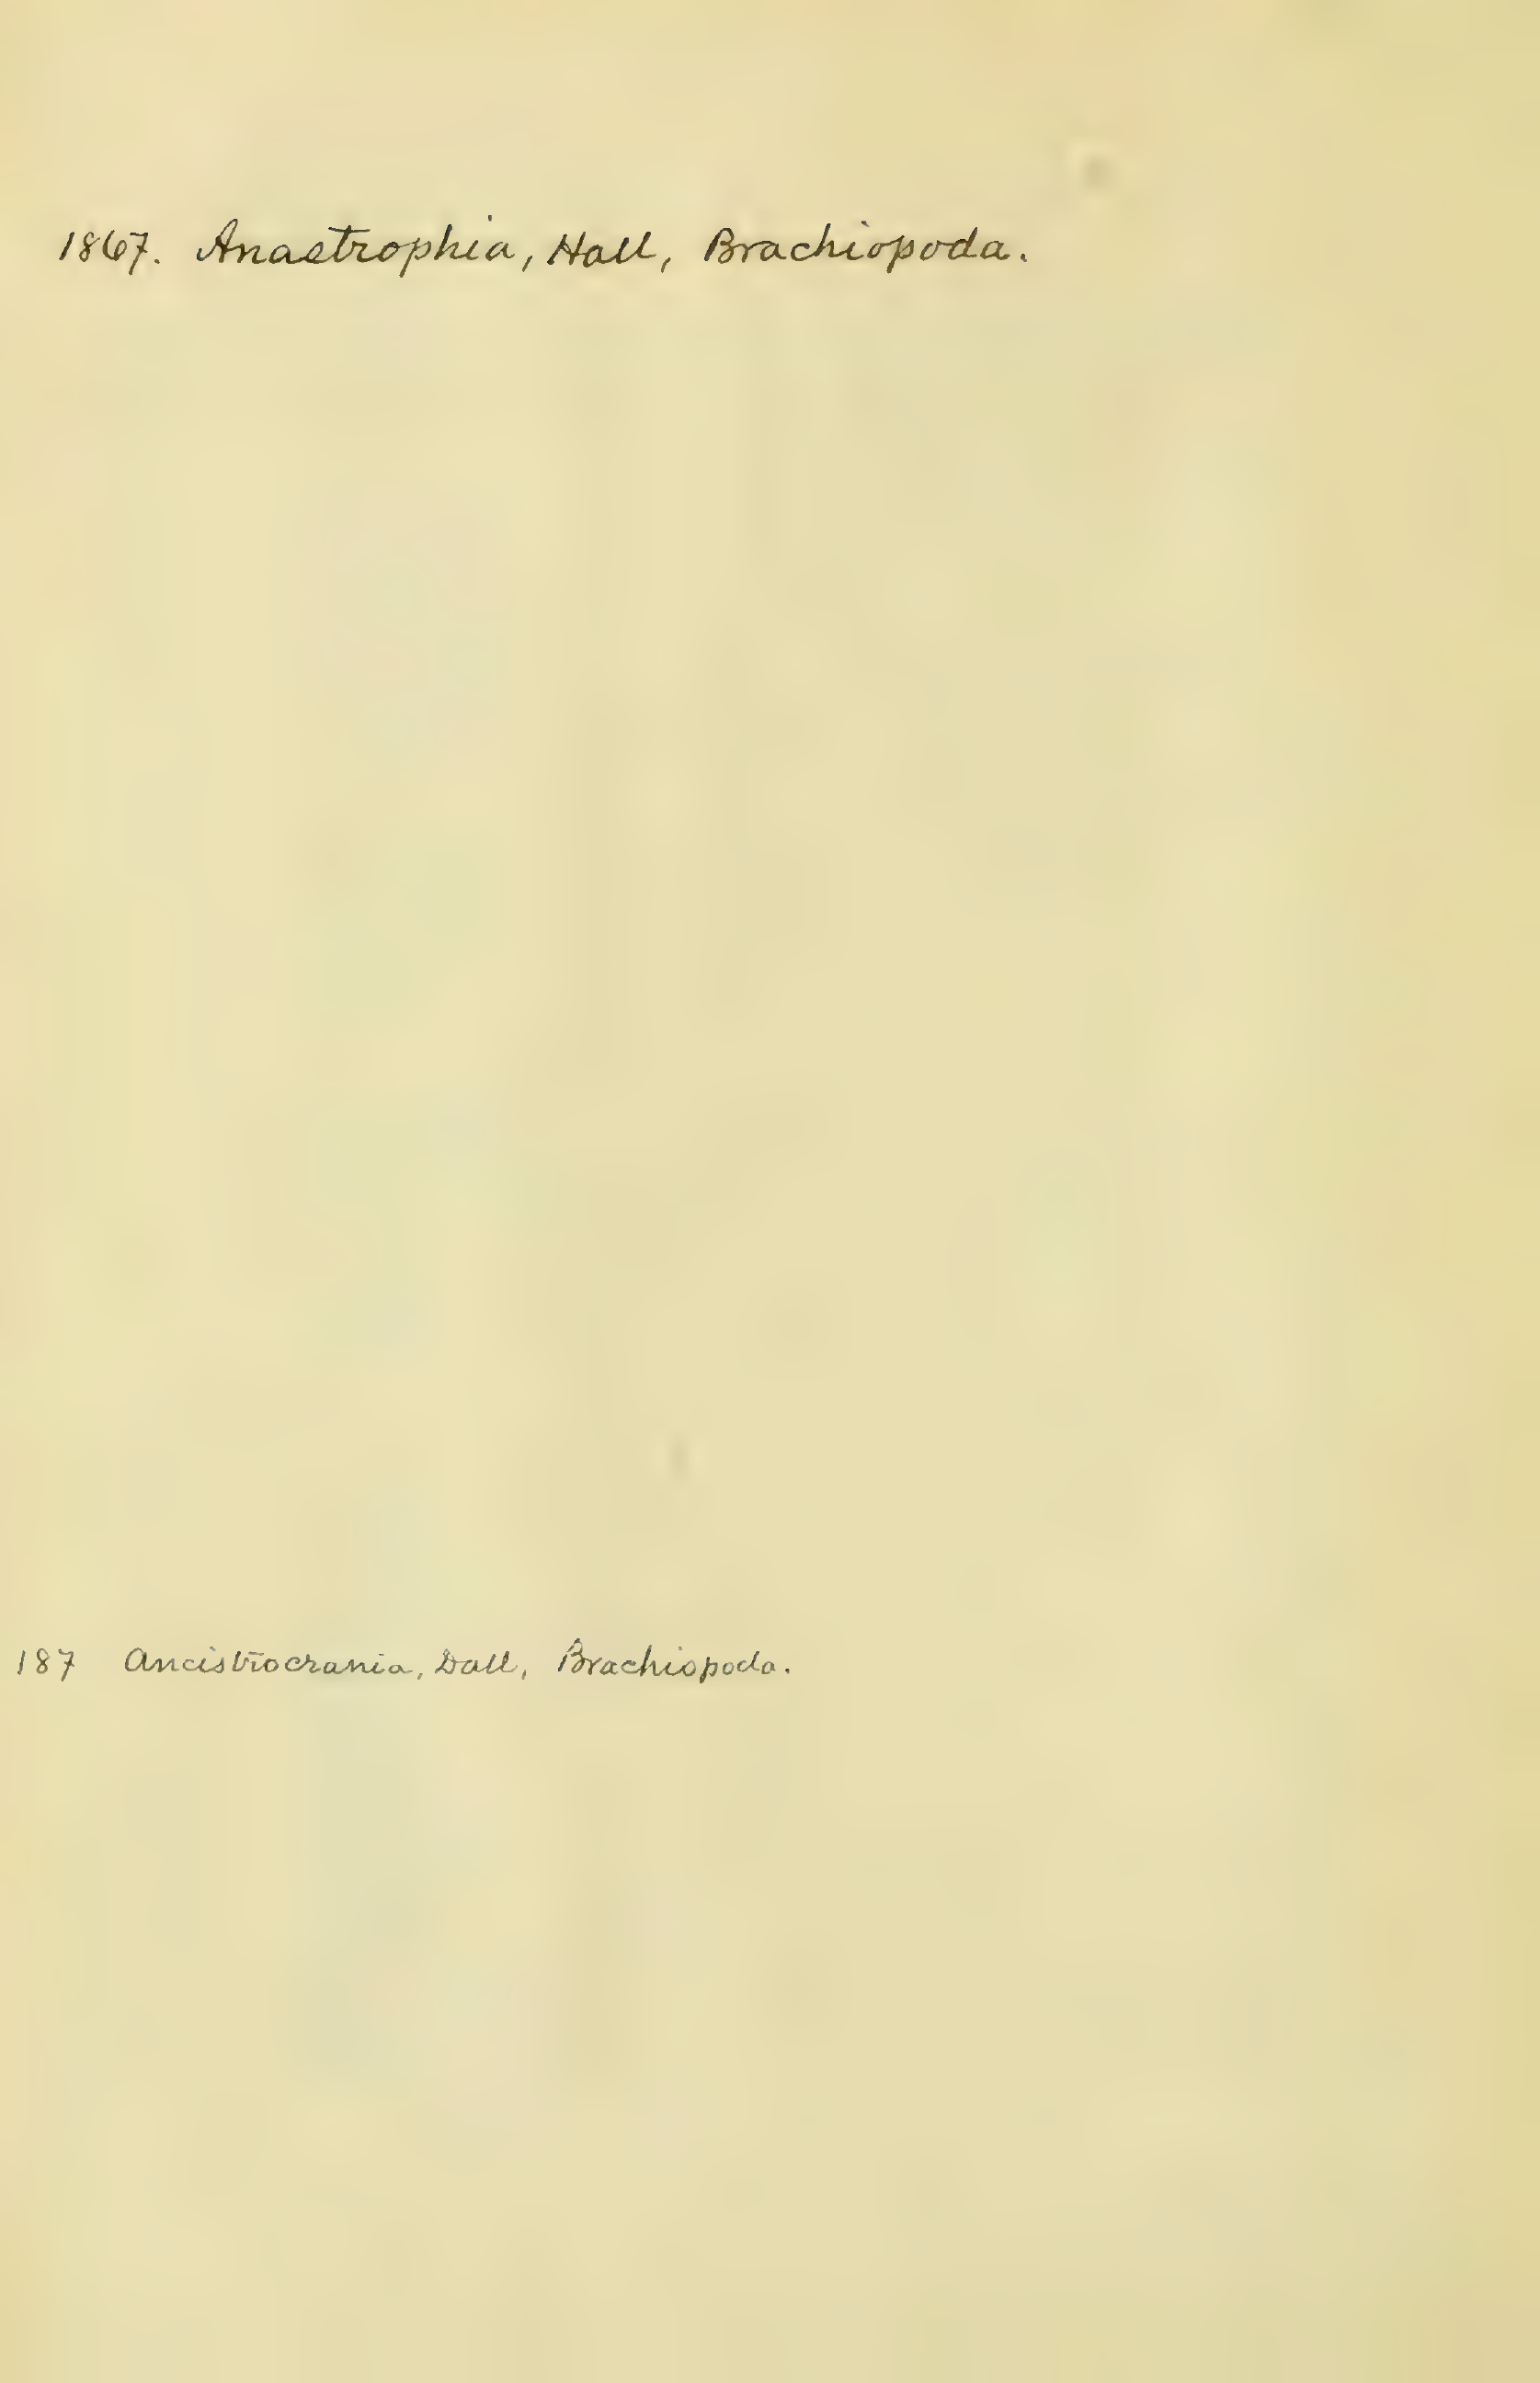 1867. Anastrophia, Hall, Brachiopoda.
187 Ancistrocrania, Dall, Brachiopoda.